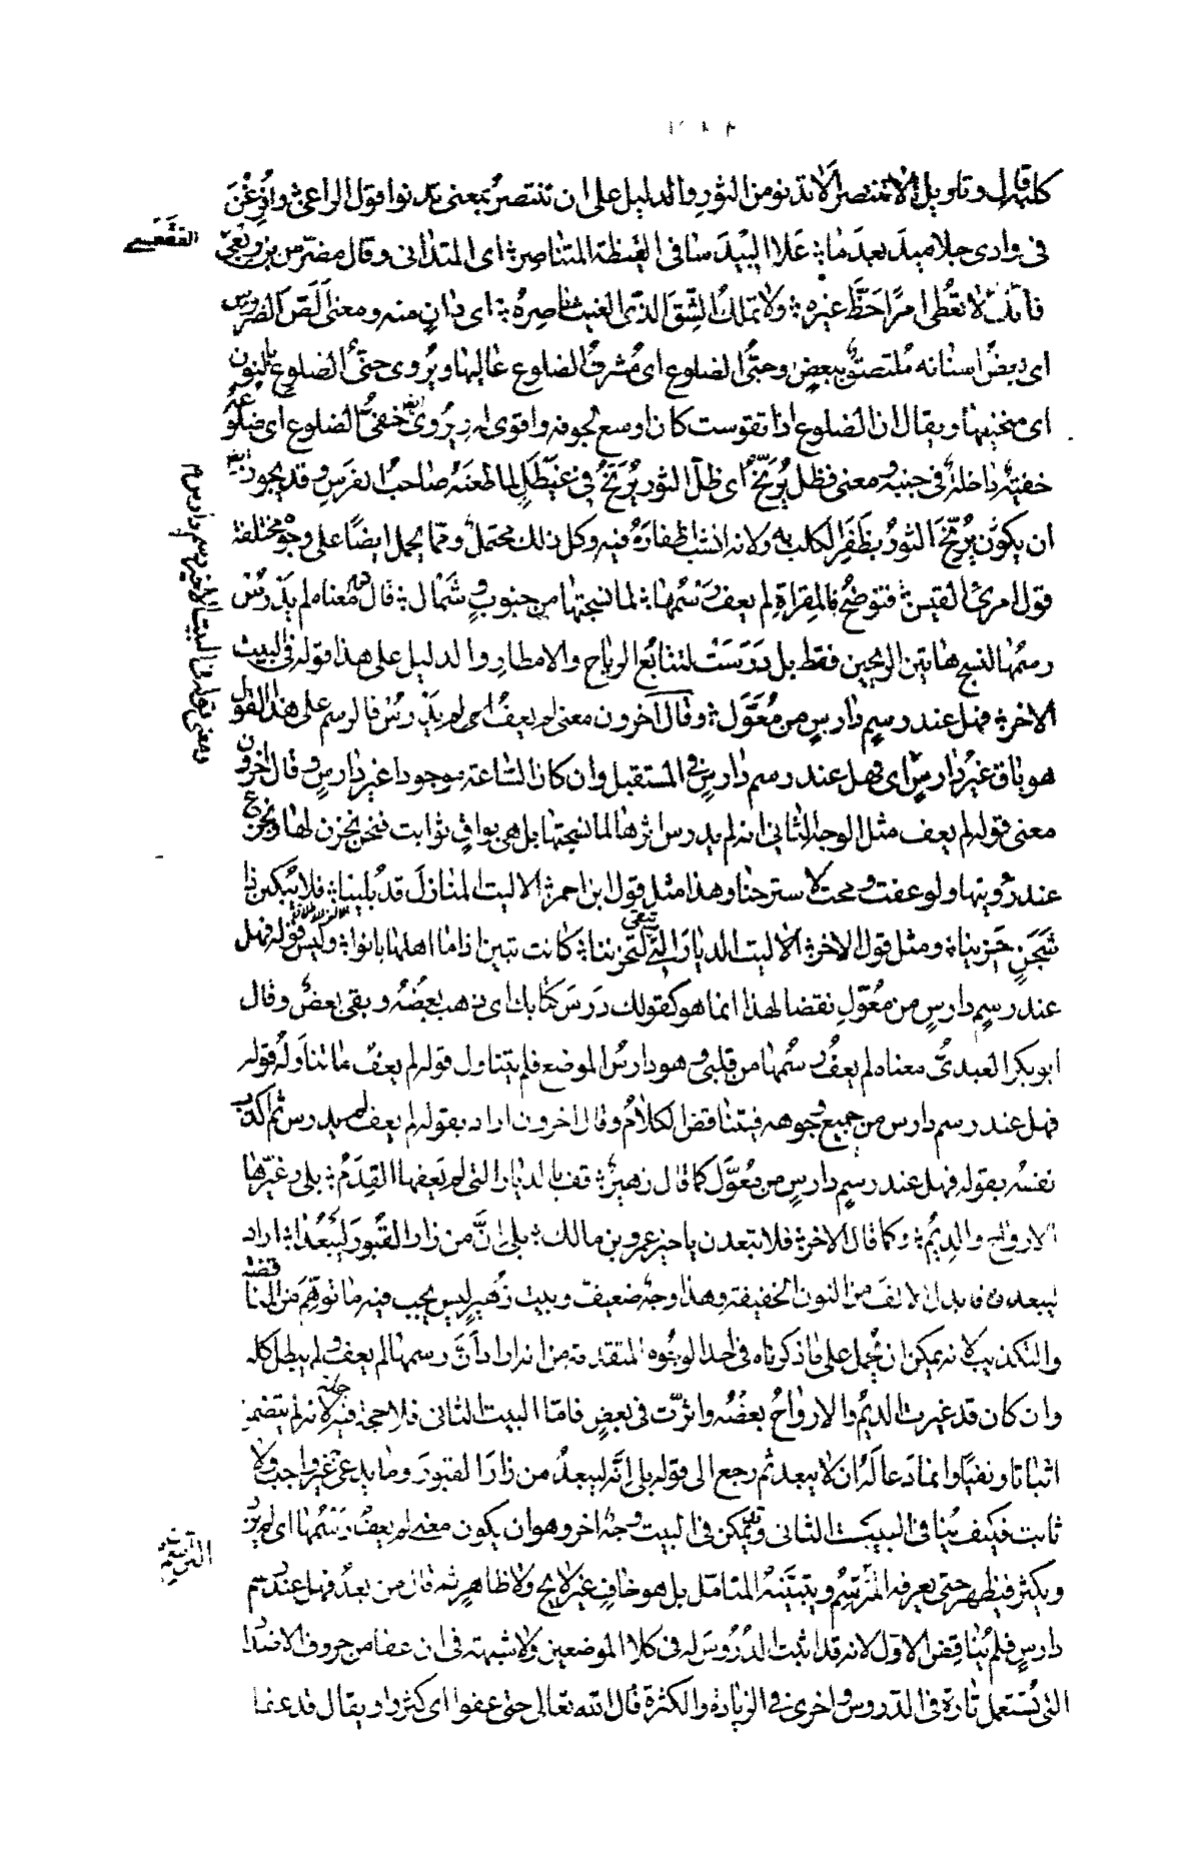 كلبها وتاويل الا تنتصر الا تدنو من الثور والدليل على ان تنتصر بمعنى تدنو قول الراعى وافرغن
فى وادى جلاميد بعد ما علا البيد سافى القيظة المتناصر اى المتدانى وقال مضرس بن ربعى
الفقعسى
فانك لا تعطى امرًا حظ غيره ولا تملك الشق الذى الغيث ناصره اى دان منه ومعنى الص الضروس
اى بعض اسنانه ملتصق ببعض وحبى الضلوع اى مشرف الضلوع عاليها ويروى حنى الضلوع بالنون
اى منحنيها ويقال ان الضلوع اذا تقوست كان اوسع لجوفه واقوى له ويروى ايضا خفى الضلوع اى ضلوعه
خفية داخلة فى جنبه ومعنى فظل يرنح اى ظل الثور يرنح فى غيطل لما طعنه صاحب الفرس وقد يجوز ايضا
ان يكون يرنح الثور بظفر الكلب به ولانه انشب اظفاره فيه وكل ذلك محتمل ومما يحمل ايضًا على وجوه مختلفة
قول امرئ القيس فتوضح فالمقراة لم يعف رسمها لما نسجتها من جنوب وشمال قال قوم معناه لم يدرس
رسمها لنسج هاتين الريحين فقط بل درست لتتابع الرياح والامطار والدليل على هذا قوله فى البيت
الاخر فهل عند رسم دارس من معول وقال آخرون معنى لم يعف اى لم يدرس فالرسم على هذا القول
هو باق غير دارس اى فهل عند رسم دارس فى المستقبل وان كان الساعة موجودا غير دارس وقال اخرون
معنى قوله لم يعف مثل الوجه الثانى انه لم يدرس اثرها لما نسجتها بل هى بواق ثوابت فنحن نحزن لها ونجزع
عند رؤيتها ولو عفت ومحت لاسترحنا وهذا مثل قول ابن احمر الا ليت المنازل قد بلينا فلا يبكين ذا
شجن حزينا ومثل قول الاخر الا ليت الديار التى تبقى لتحزننا كانت تبين اذا ما اهلها بانوا وليس قوله فهل
عند رسم دارس من معول نقضا لهذا انما هو كقولك درس كتابك اى ذهب بعضه وبقى بعض وقال
ابو بكر العبدى معناه لم يعف رسمها من قلبى وهو دارس الموضع فلم يتناول قوله لم يعف ما تناوله قوله
فهل عند رسم دارس من جميع وجوهه فيتناقض الكلام وقال اخرون اراد بقوله لم يعف لم يدرس ثم اكذب
نفسه بقوله فهل عند رسم دارس من معول كما قال زهير قف بالديار التى لم يعفها القدم بلى وغيرها
الارواح والديم وكما قال الاخر فلا تبعدن يا خير عمرو بن مالك بلى ان من زار القبور ليبعدا اراد
ليبعدن فابدل الالف من النون الخفيفة وهذا وجه ضعيف وبيت زهير ليس يجب فيه ما توهم من المناقضة
والتكذيب لانه يمكن ان يحمل على ما ذكرناه فى احد الوجوه المتقدمة من انه اراد ان رسمها لم يعف ولم يبطل كله
وان كان قد غيرت الديم والارواح بعضه واثرت فى بعض فاما البيت الثانى فلا حجة فيه لانه لم يتضمن
اثباتا ونفيا وانما دعا له ان لا يبعد ثم رجع الى قوله بلى انه ليبعد من زار القبور وما يدعى غير واجب ولا
ثابت فكيف ينافى البيت الثانى وقد يمكن فى البيت وجه اخر وهو ان يكون معنى لم يعف رسمها اى لم يزد
ويكثر فيظهر حتى يعرفه المترسم ويتبينه المتامل بل هو خاف غير لايح ولا ظاهر ثم قال من بعد فهل عند رسم
دارس فلم يناقض الاول لانه قد اثبت الدروس له فى كلا الموضعين ولا شبهة فى ان عفا من حروف الاضداد
التى تستعمل تارة فى الدروس واخرى فى الزيادة والكثرة قال الله تعالى حتى عفوا اى كثروا ويقال قد عفا